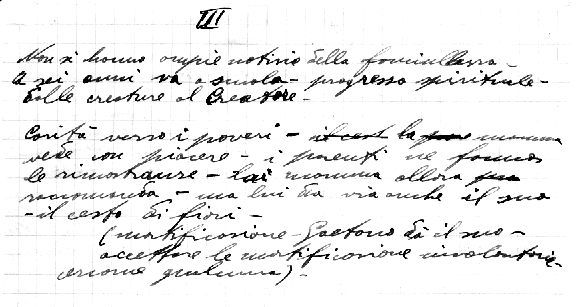 III
Non si hanno ampie notizie della fanciullezza -
A sei anni va a scuola - progresso spirituale -
dalle creature al Creatore -
Carità verso i poveri - la mamma
vede con piacere - i parenti ne fanno
le rimostranze - la mamma allora
raccomanda - ma lui dà via anche il suo
- il cesto di fiori -
(mortificazione - Gaetano dà il suo -
accettare le mortificazione involontarie
)-